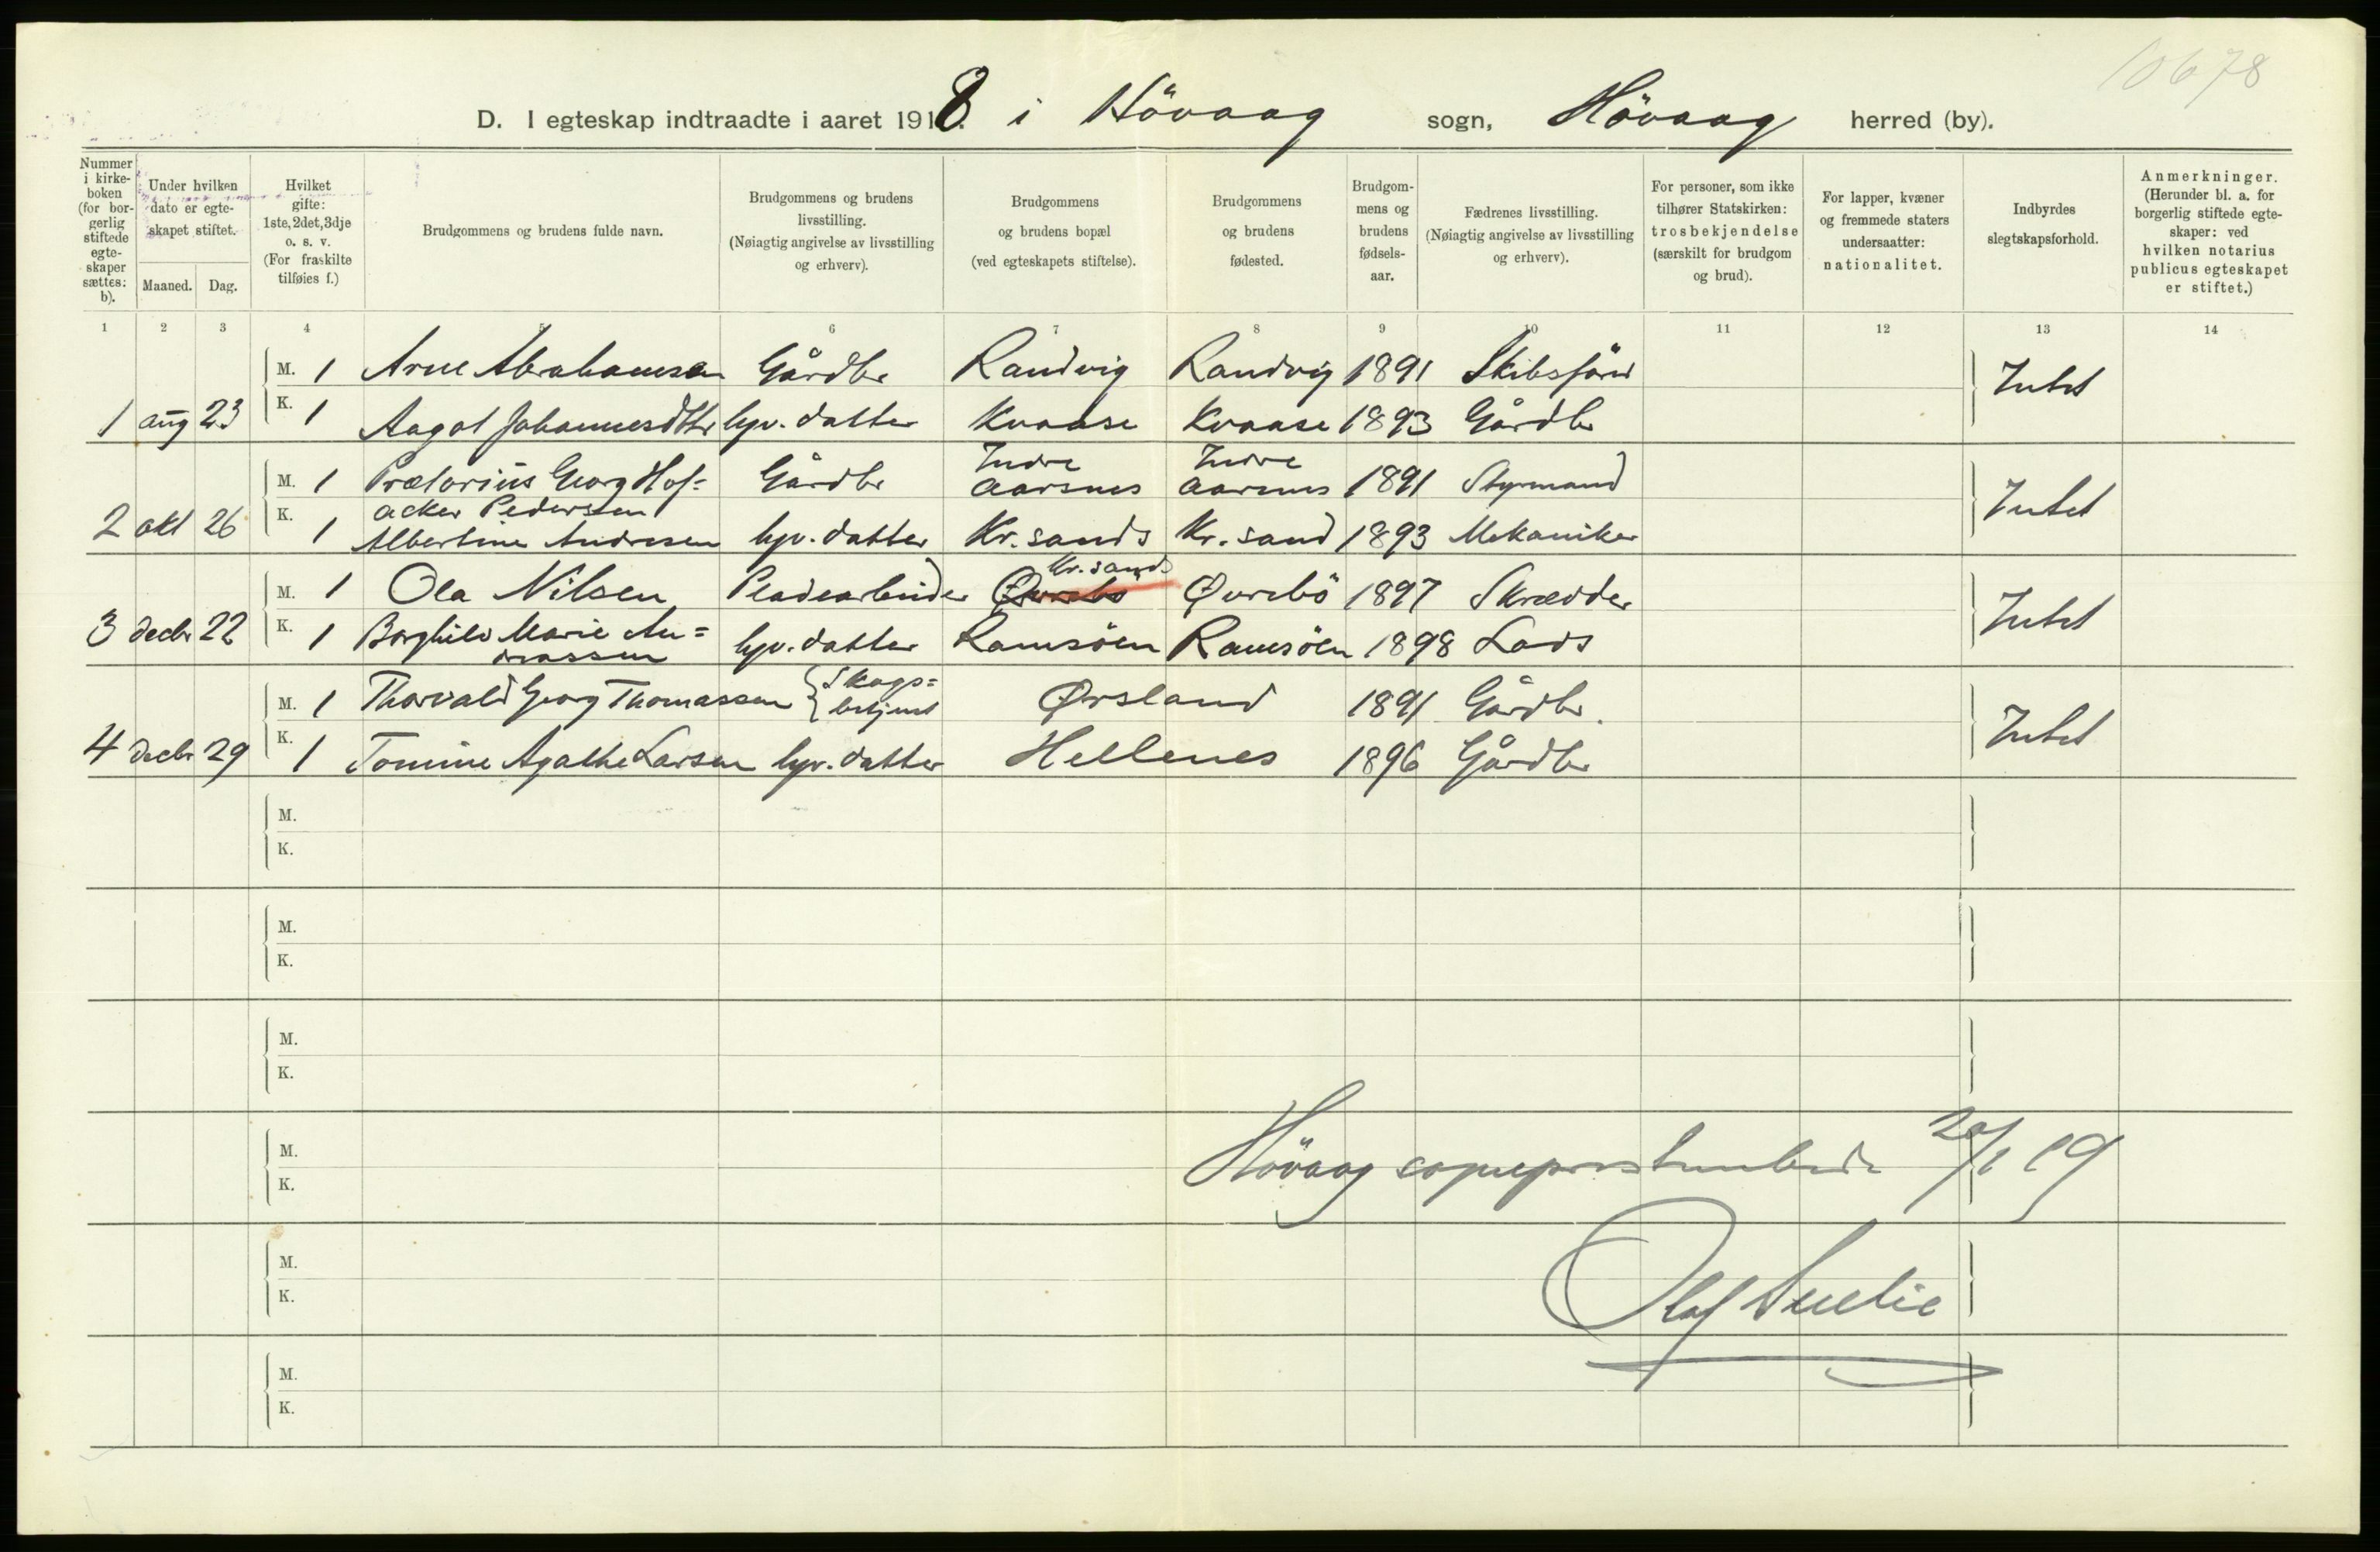 10678
D. I egteskap indtraadte i aaret 1918. i Hövaag sogn, Hövaag herred (by).
Nummer i kirke-boken (for bor-gerlig stiftede egte-skaper sættes: b).
Under hvilken dato er egte-skapet stiftet.
Maaned. Dag.
Hvilket gifte: 1ste, 2det, 3dje o. s. v. (For fraskilte tilføies f.)
Brudgommens og brudens fulde navn.
Brudgommens og brudens livsstilling. (Nøiagtig angivelse av livsstilling og erhverv).
Brudgommens og brudens bopæl (ved egteskapets stiftelse).
Brudgommens og brudens fødested.
Brudgom-mens og brudens fødsels-aar.
Fædrenes livsstilling. (Nøiagtig angivelse av livsstilling og erhverv).
For personer, som ikke tilhører Statskirken: trosbekjendelse (særskilt for brudgom og brud).
For lapper, kvæner og fremmede staters undersaatter: nationalitet.
Indbyrdes slegtskapsforhold.
Anmerkninger. (Herunder bl. a. for borgerlig stiftede egte-skaper: ved hvilken notarius publicus egteskapet er stiftet.)
1 2 3 4 5 6 7 8 9 10 11 12 13 14
M. 1 Arne Abrahamsen Gårdbr Randvig Randvig 1891 Skibsfører Intet
1 aug 23 K. 1 Aagot Johannesdttr hjv. datter Kvaase Kvaase 1893 Gårdbr
M. 1 Prætorius Georg Hof= Gårdbr Indre Aarsnes Indre Aarsnes 1891 Styrmand Intet
acker Pedersen
2 okt 26 K. 1 Albertine Andresen hjv. datter Kr. sands Kr. sand 1893 Mekaniker
Kr. sands
M. 1 Ola Nilsen Pladearbeider Øvrebö Øvrebö 1897 Skrædder Intet
3 decbr 22 K. 1 Borghild Marie An= hjv. datter Ramsöen Ramsöen 1898 Lods
dreassen
M. 1 Thorvald Georg Thomassen Skogs= betjent Ørsland 1891 Gårdbr. Intet
4 decbr 29 K. 1 Tomine Agathe Larsen hjv. datter Hellenes 1896 Gårdbr
M.
K.
M.
K.
M.
K.
M.
K.
Hövaag sogneprestembede 20/1 19
M.
K.
Olaf
M.
K.